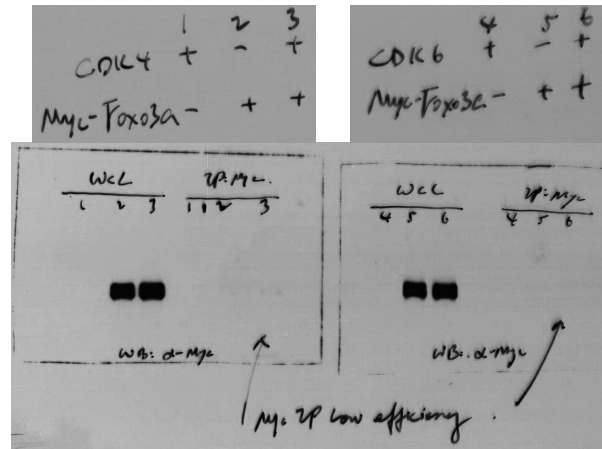 1 2 3
CDK4 + - +
Myc-Foxo3a - + +
4 5 6
CDK6 + - +
Myc-Foxo3a - + +
WCL IP: Myc.
1 2 3 1 2 3
WB: α-Myc
WCL IP: Myc
4 5 6 4 5 6
WB: α-Myc
Myc IP low efficiency.